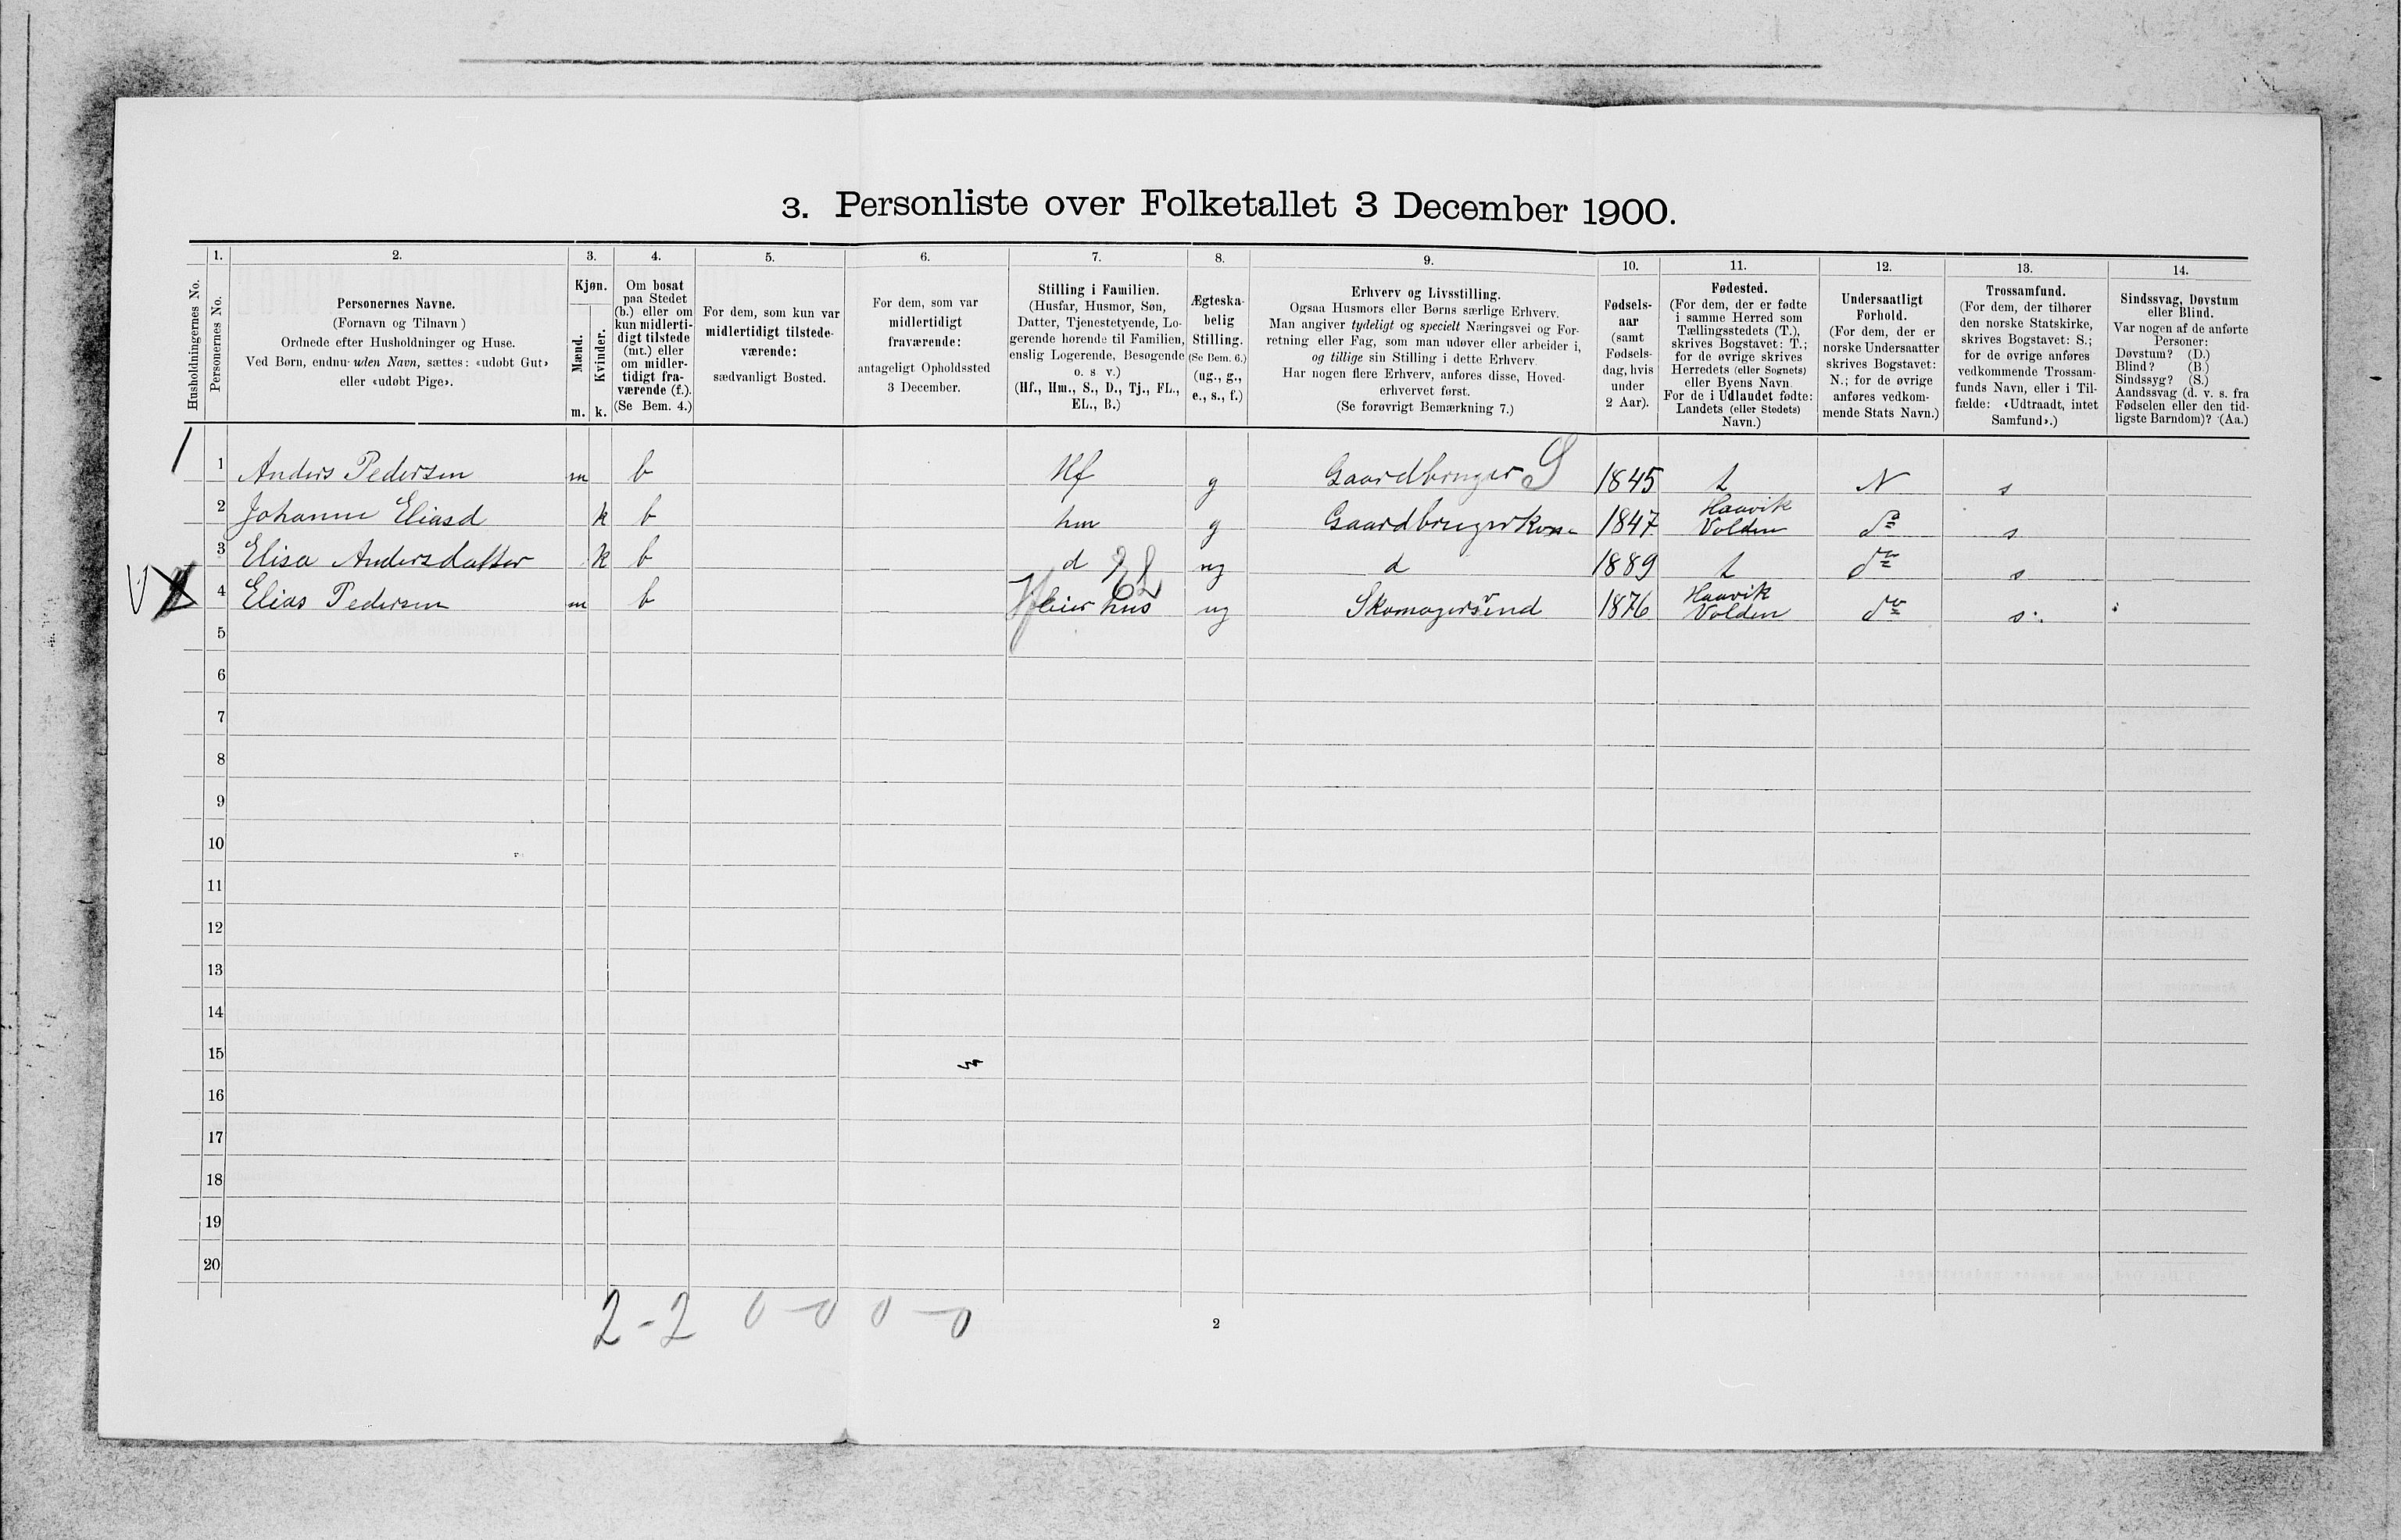 3. Personliste over Folketallet 3 December 1900.
1. 2. 3. 4. 5. 6. 7. 8. 9. 10. 11. 12. 13. 14.
Husholdningernes No.
Personernes No.
Personernes Navne.
(Fornavn og Tilnavn)
Ordnede efter Husholdninger og Huse.
Ved Børn, endnu uden Navn, sættes: «udøbt Gut»
eller «udøbt Pige».
Kjøn.
Mænd.
Kvinder.
m. k.
Om bosat
paa Stedet
(b.) eller om
kun midlerti-
digt tilstede
(mt.) eller
om midler-
tidigt fra-
værende (f.).
(Se Bem. 4.)
For dem, som kun var
midlertidigt tilstede-
værende:
sædvanligt Bosted.
For dem, som var
midlertidigt
fraværende:
antageligt Opholdssted
3 December.
Stilling i Familien.
(Husfar, Husmor, Søn,
Datter, Tjenestetyende, Lo-
gerende hørende til Familien,
enslig Logerende, Besøgende
o. s v.)
(Hf., Hm., S., D., Tj., FL.,
EL., B.)
Ægteska-
belig
Stilling.
(Se Bem. 6.)
(ug., g.,
e., s., f.)
Erhverv og Livsstilling.
Ogsaa Husmors eller Børns særlige Erhverv.
Man angiver tydeligt og specielt Næringsvei og For-
retning eller Fag, som man udøver eller arbeider i,
og tillige sin Stilling i dette Erhverv.
Har nogen flere Erhverv, anføres disse, Hoved-
erhvervet først.
(Se forøvrigt Bemærkning 7.)
Fødsels-
aar
(samt
Fødsels-
dag, hvis
under
2 Aar).
Fødested.
(For dem, der er fødte
i samme Herred som
Tællingsstedets (T.),
skrives Bogstavet: T.;
for de øvrige skrives
Herredets (eller Sognets)
eller Byens Navn.
For de i Udlandet fødte:
Landets (eller Stedets)
Navn.)
Undersaatligt
Forhold.
(For dem, der er
norske Undersaatter
skrives Bogstavet:
N.; for de øvrige
anføres vedkom-
mende Stats Navn.)
Trossamfund.
(For dem, der tilhører
den norske Statskirke,
skrives Bogstavet: S.;
for de øvrige anføres
vedkommende Trossam-
funds Navn, eller i Til-
fælde: «Udtraadt, intet
Samfund».)
Sindssvag, Døvstum
eller Blind.
Var nogen af de anførte
Personer:
Døvstum? (D.)
Blind? (B.)
Sindssyg? (S.)
Aandssvag (d. v. s. fra
Fødselen eller den tid-
ligste Barndom)? (Aa.)
1 1 Anders Pedersen m b Hf g Gaardbruger S 1845 t N s
2 Johanne Eliasd k b hm g Gaardbrugerkone 1847 Haavik Volden do s
3 Elisa Andersdatter k b d ug d 1889 t do s
4 Elias Pedersen m b EL leier hus ug Skomagersvend 1876 Haavik Volden do s
5
6
7
8
9
10
11
12
13
14
15
16
17
18
19
20
2-2 0-0 0-0
2